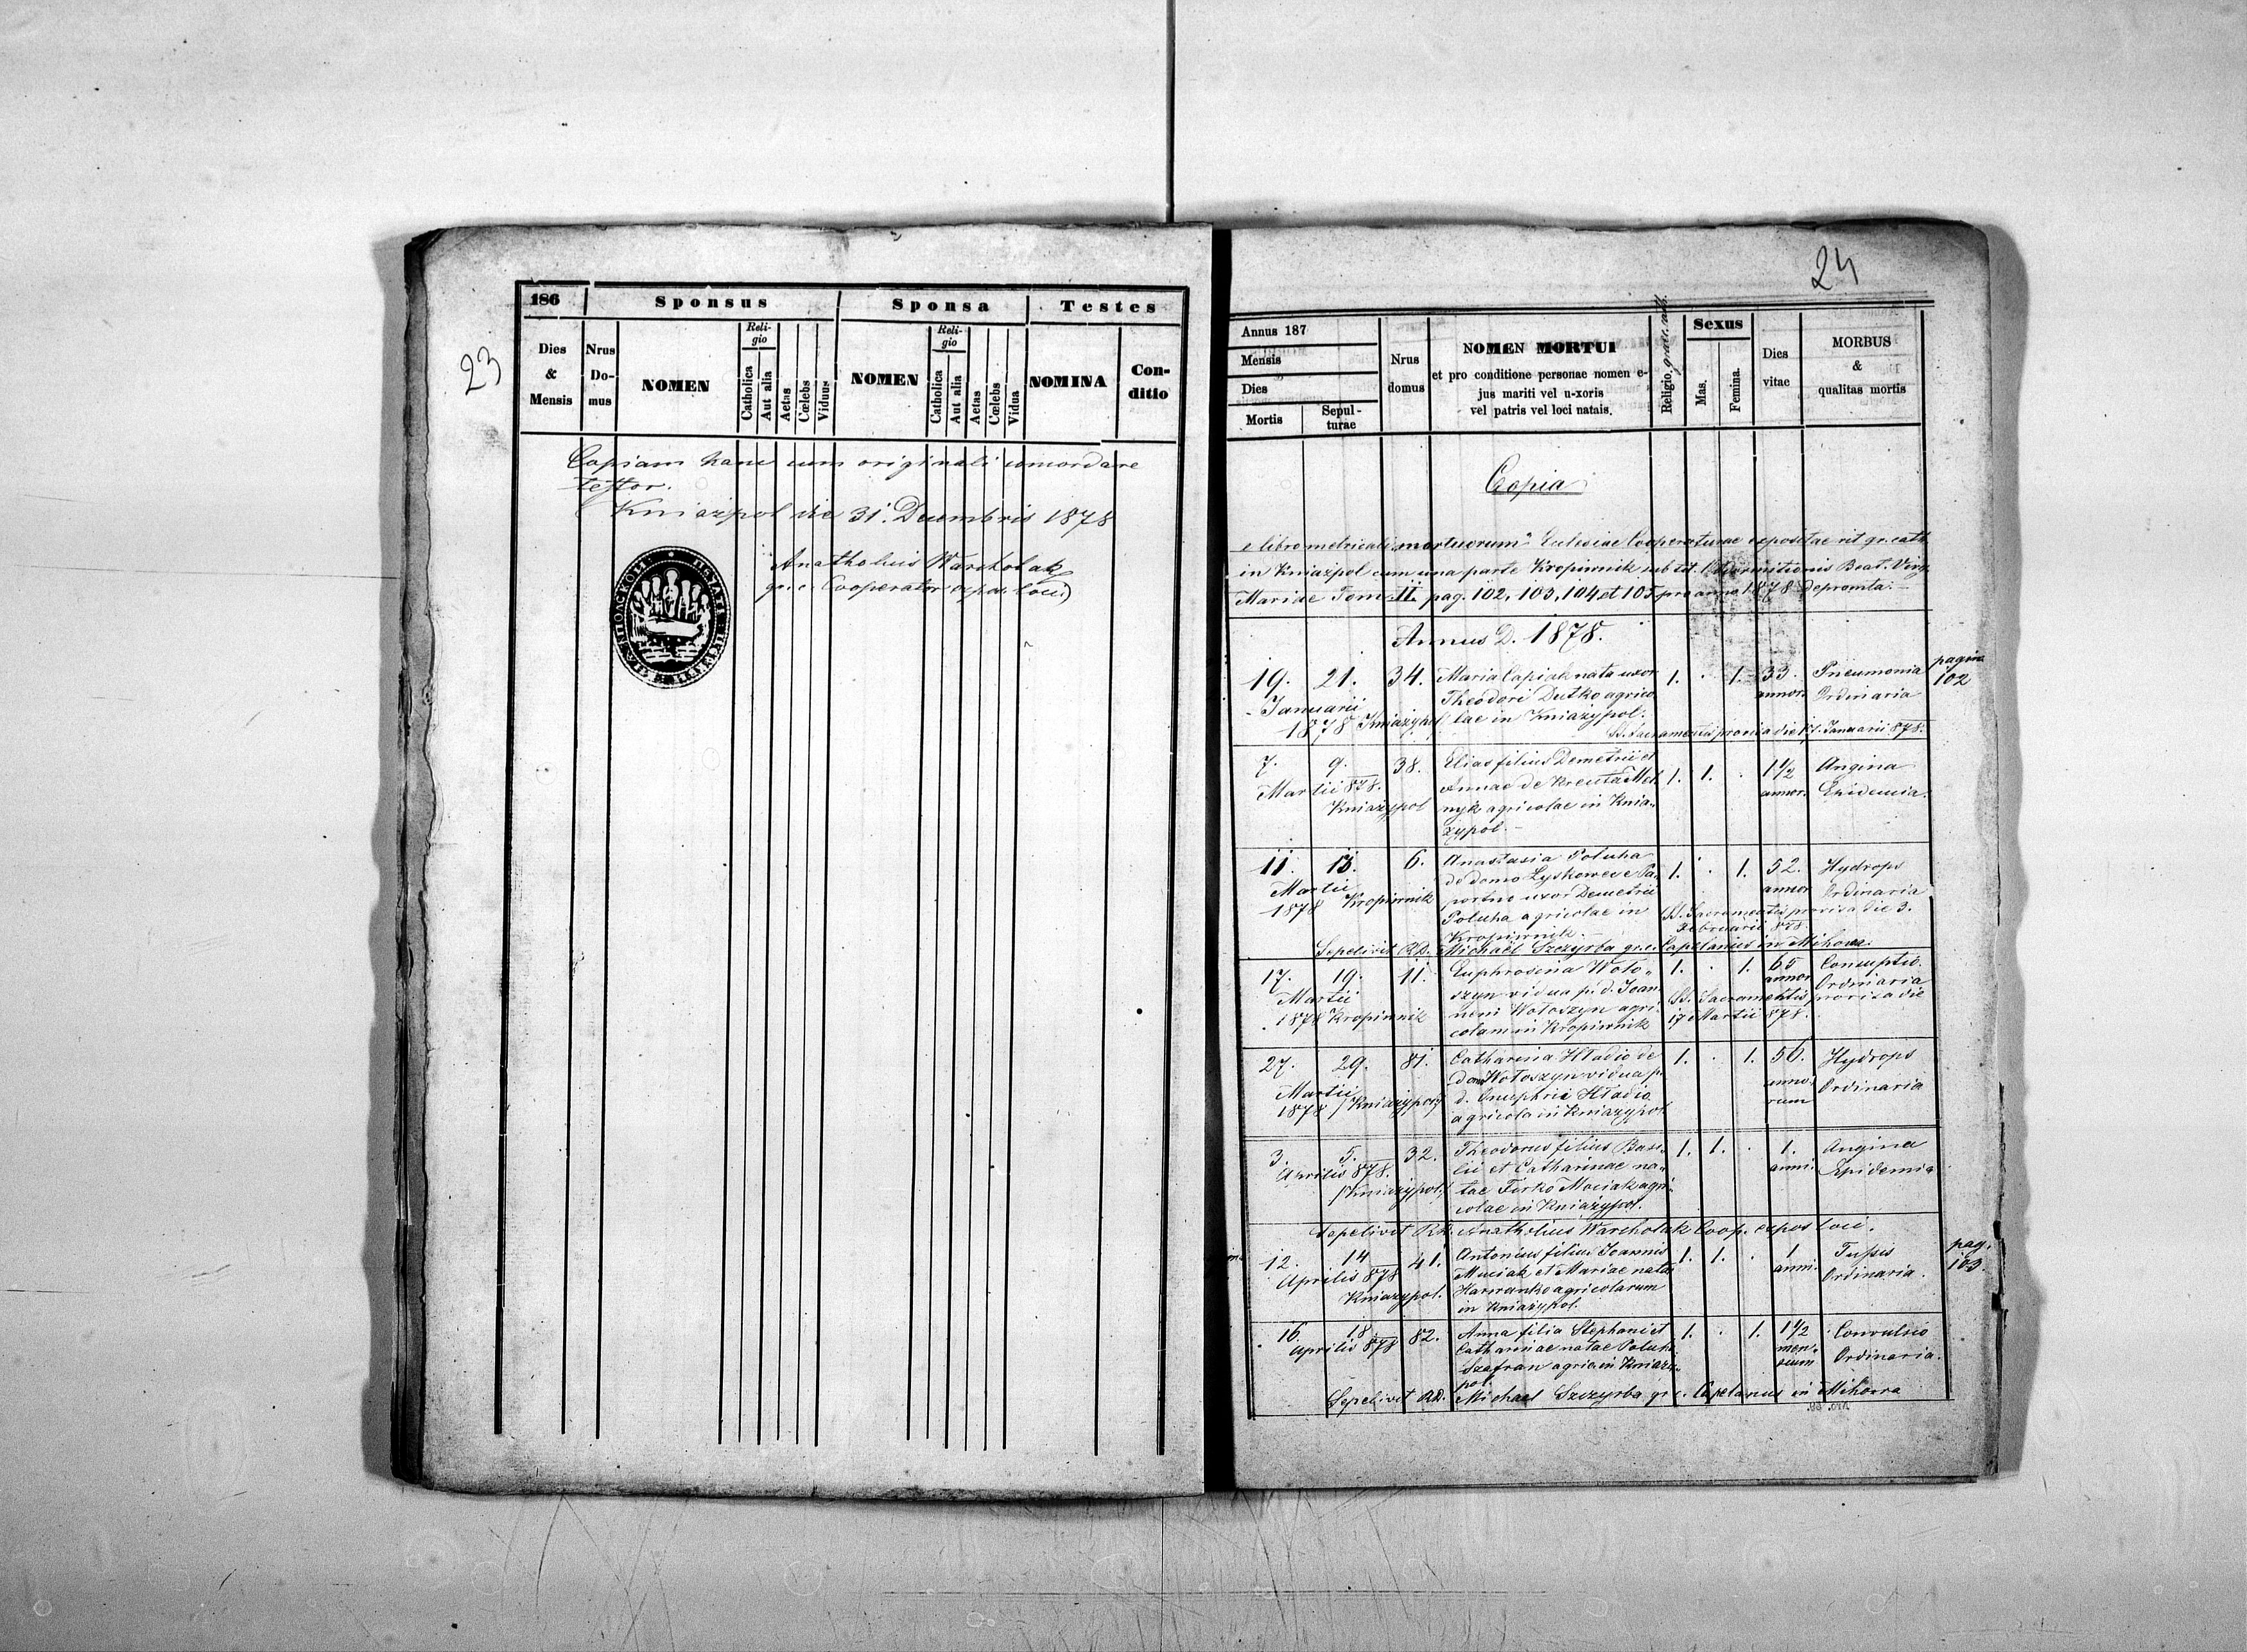 23
186 Sponsus Sponsa Testes
Dies & Mensis Nrus Domus NOMEN Religio Catholica Aut alia Aetas Cœlebs Viduus NOMEN Religio Catholica Aut alia Aetas Cœlebs Vidua NOMINA Conditio
Copiam hanc cum originali concordare
testor.
Kniazpol die 31. Decembris 1878
Anatholius Warcholak
gr. c. Cooperator expos. loci
24
Annus 187
Mensis
Dies
Mortis Sepulturae
Nrus domus
NOMEN MORTUI
et pro conditione personae nomen e-
jus mariti vel u-xoris
vel patris vel loci natais.
Religio graec. cath.
Sexus
Mas. Femina.
Dies vitae
MORBUS
&
qualitas mortis
Copia
e libro metricali "mortuorum" Ecclesiae Cooperaturae expositae rit. gr. cath.
in Kniażpol cum una parte Kropiwnik sub tit. Dormitionis Beat. Virg.
Mariae Tom. II. pag. 102, 103, 104 et 105 pro anno 1878 depromta.
Annus D. 1878.
pagina
102
19. 21. 34. Maria Capiak nata uxor 1. . 1. 33. Pneumonia
Januarii Theodori Dutko agrico annor. Ordinaria
1878 Kniażypol lae in Kniażypol.
SS. Sacramentis provisa die 17. Januarii 878.
7. 9. 38. Elias filius Demetrii et 1. 1. . 1 1/2 Angina
Martii 878. Annae de Mel- annor. Epidemia.
Kniażypol nyk agricolae in Knia-
żypol.
11. 13. 6. Anastasia Poluha 1. . 1. 52. Hydrops
Martii de domo Pa- annor Ordinaria
1878 Kropiwnik uxor Demetrii
Poluha agricolae in SS. Sacramentis provisa die 3.
Kropiwnik. Februarii 878.
Sepelivit RD. Michaël Szczyrba gr. c. Capelanus in Mihowa.
17. 19. 11. Euphrosina Woło- 1. . 1. 65 Consuptio.
Martii szyn vidua p. d. Joan- annor Ordinaria
1878 Kropiwnik nem Wołoszyn agri- SS. Sacramentis provisa die
colam in Kropiwnik 17 Martii 878.
27. 29. 81. Catharina Hładio de 1. . 1. 56. Hydrops
Martii dom Wołoszyn vidua p. anno- Ordinaria
1878 /Kniażypol/ d. Onuphrii Hładio rum
agricola in Kniażypol
3. 5. 32. Theodorus filius Basi- 1. 1. . 1. Angina
Aprilis 878. lii et Catharinae na- anni. Epidemia
/Kniażypol/ tae Firko Maciak agri-
colae in Kniażypol.
Sepelivit RD. Anatholius Warcholak Coop. expos loci.
12. 14 41. Antonius filius Joannis 1. 1. . 1 Tussis
Aprilis 878 Muciak et Mariae nata anni. Ordinaria.
Kniażypol. Harwanko agricolarum
in Kniażypol.
pag.
103.
16. 18 82. Anna filia Stephani et 1. . 1. 1 1/2 Convulsio
Aprilis 878 Catharinae natae men- Ordinaria.
Szafran agri in Kniaży- sium
pol.
Sepelivit RD. Michael Szczyrba gr. c. Capelanus in Mihowa